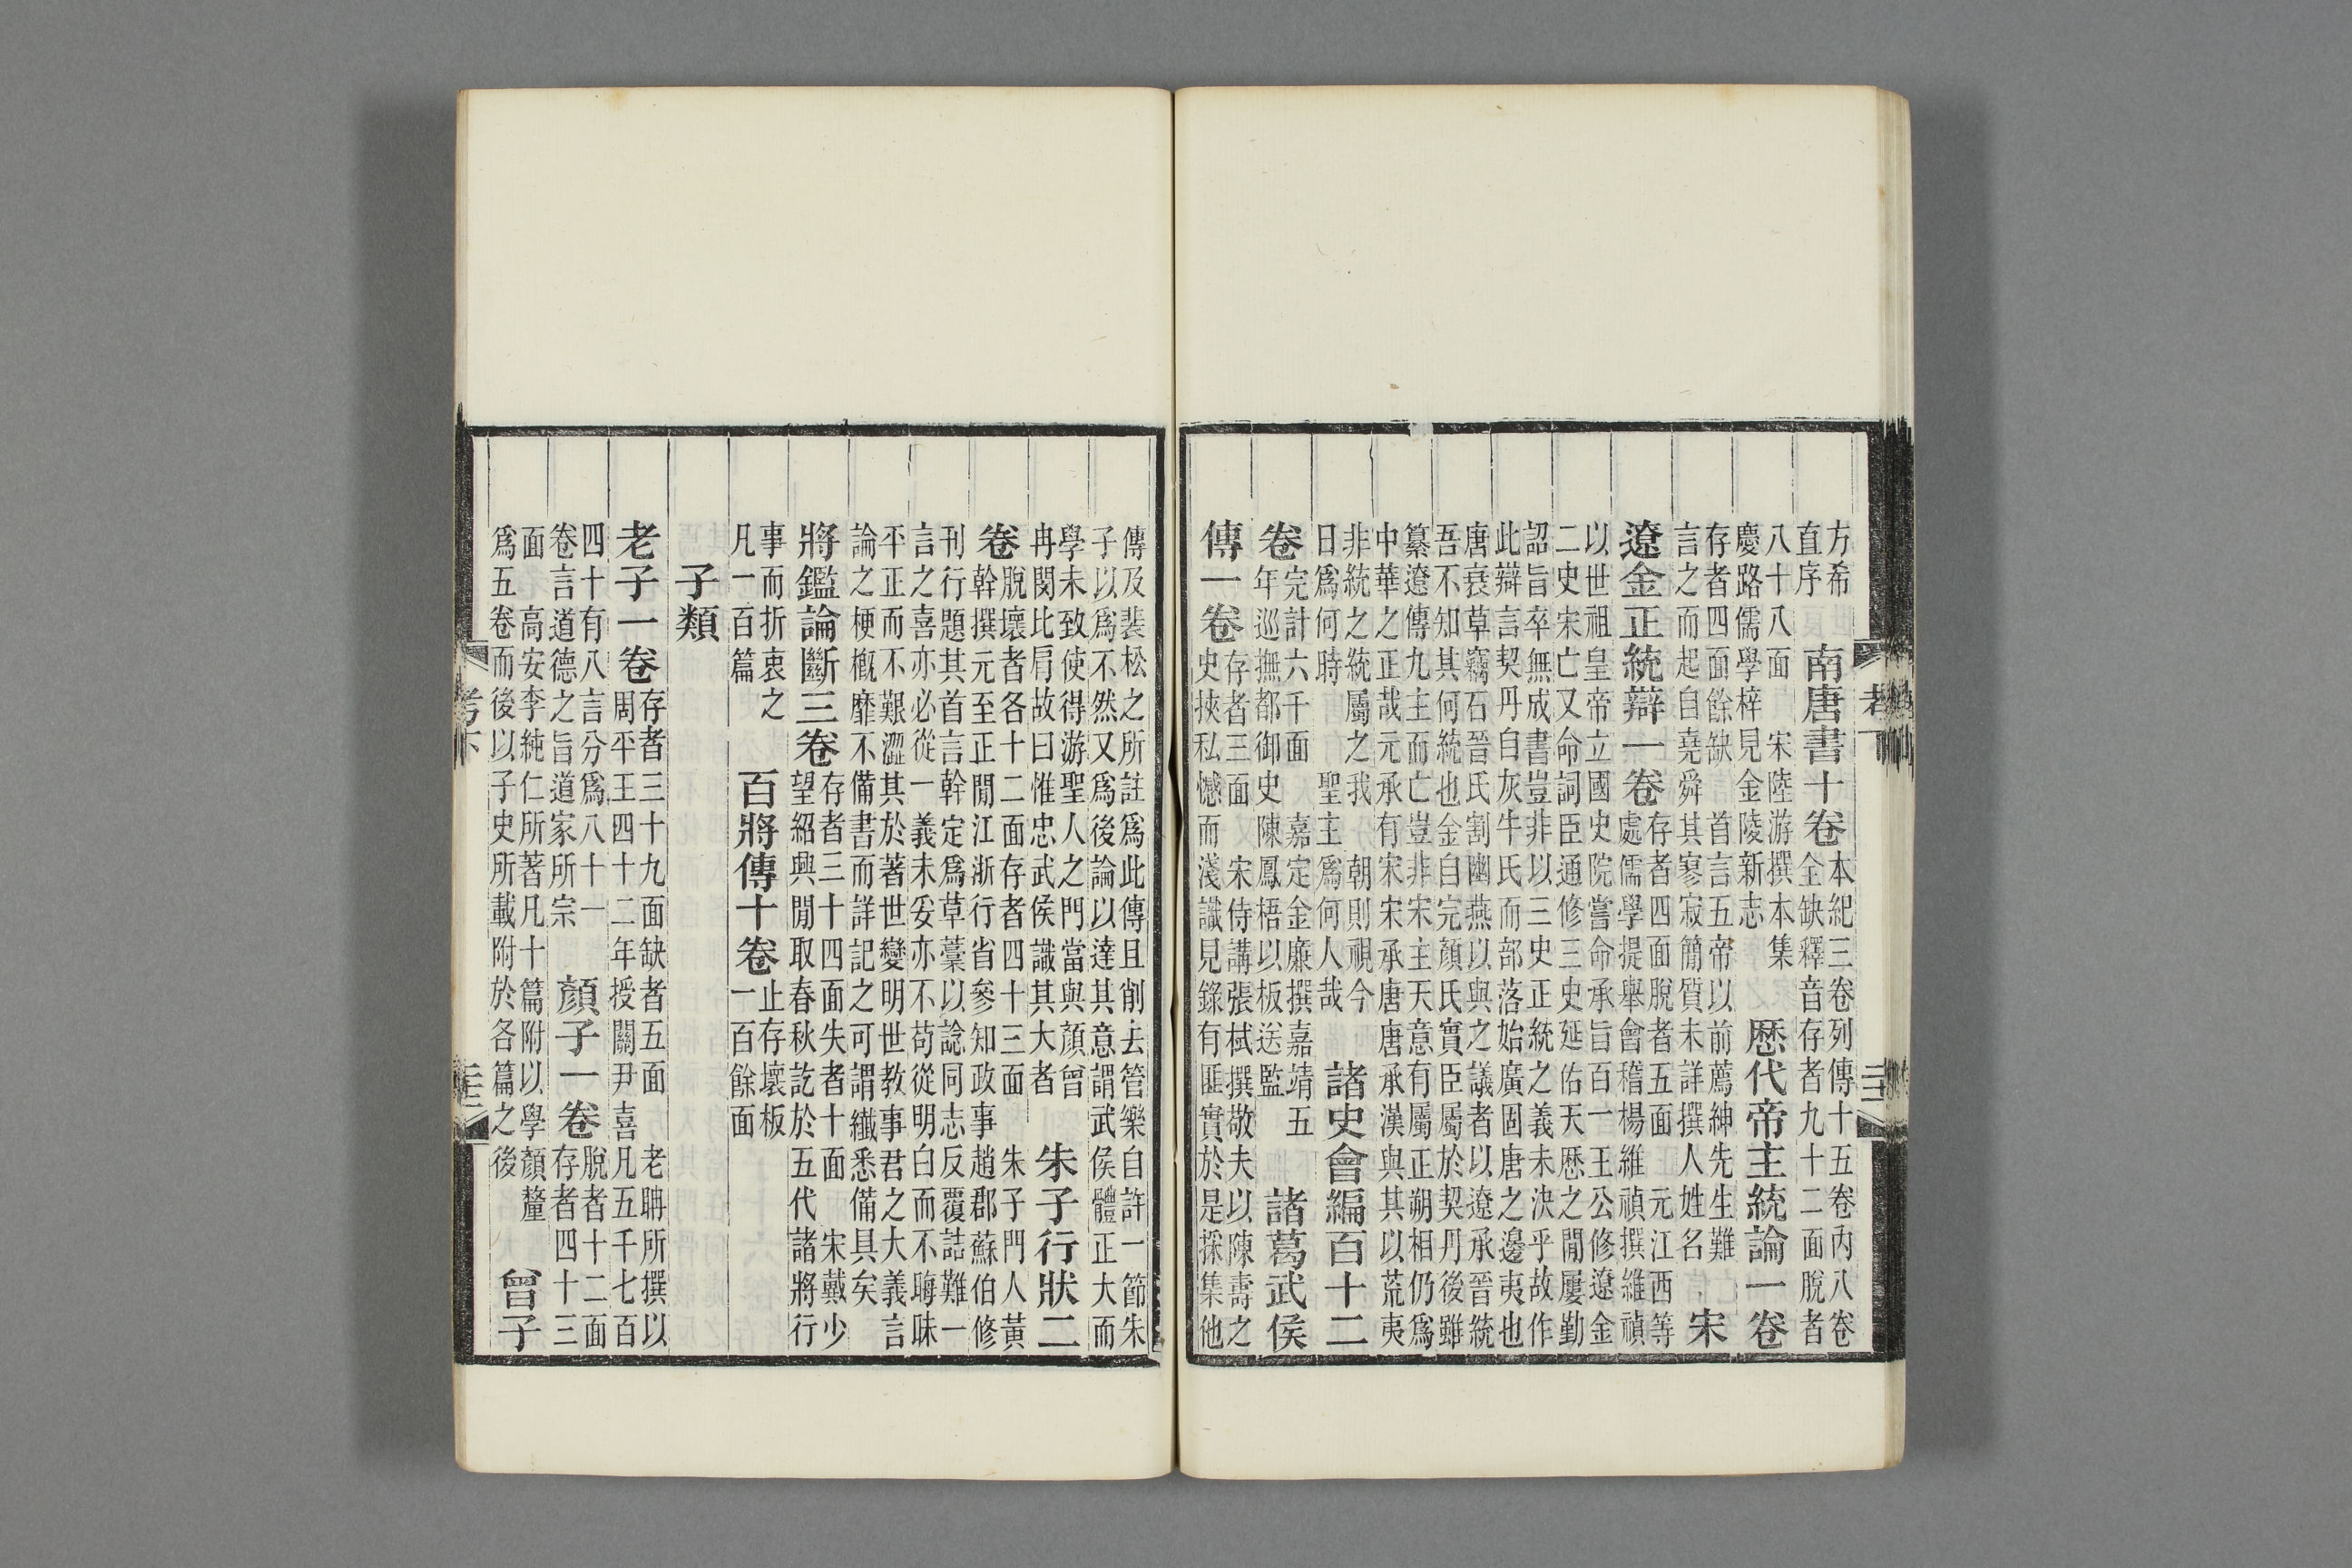 方希
直序
南唐書十卷
本紀三卷列傳十五卷內八卷
全缺釋音存者九十二面脫者
八十八面　宋陸游撰本集
慶路儒學梓見金陵新志
歷代帝主統論一卷
存者四面餘缺　首言五帝以前薦紳先生難
言之而起自堯舜其寥寂簡質未詳撰人姓名
宋
遼金正統辯一卷
存者四面脫者五面　元江西等
處儒學提舉會稽楊維禎撰維禎
以世祖皇帝立國史院嘗命承旨百一王公修遼金
二史宋亡又命詞臣通修三史延佑天歷之閒屢勤
詔旨卒無成書豈非以三史正統之義未決乎故作
此辯言契丹自灰牛氏而部落始廣固唐之邊夷也
唐衰草竊石晉氏割幽燕以與之議者以遼承晉統
吾不知其何統也金自完顏氏實臣屬於契丹後雖
纂遼傳九主而亡豈非宋主天意有屬正朔相仍爲
中華之正哉元承有宋宋承唐唐承漢與其以荒夷
非統之統屬之我　朝則視今
日爲何時　聖主爲何人哉
諸史會編百十二
卷
完計六千面　嘉定金廉撰嘉靖五
年巡撫都御史陳鳳梧以板送監
諸葛武侯
傳一卷
存者三面　宋侍講張栻撰敬夫以陳壽之
史挾私憾而淺讖見錄有匪實於是採集他
考下
傳及裴松之所註爲此傳且削去管樂自許一節朱
子以爲不然又爲後論以達其意謂武侯體正大而
學未致使得游聖人之門當與顏曾
冉閔比肩故曰惟忠武侯讖其大者
朱子行狀二
卷
脫壞者各十二面存者四十三面　朱子門人黃
幹撰元至正閒江浙行省參知政事趙郡蘇伯修
刊行題其首言幹定爲草藁以諗同志反覆詰難一
言之喜亦必從一義未妥亦不苟從明白而不晦昧
平正而不艱澀其於著世變明世教事君之大義言
論之梗概靡不備書而詳記之可謂纖悉備具矣
將鑑論斷三卷
存者三十四面失者十面　宋戴少
望紹興閒取春秋訖於五代諸將行
事而折衷之
凡一百篇
百將傳十卷
止存壞板
一百餘面
子類
老子一卷
存者三十九面缺者五面　老聃所撰以
周平王四十二年授關尹喜凡五千七百
四十有八言分爲八十一
卷言道德之旨道家所宗
顏子一卷
脫者十二面
存者四十三
面　高安李純仁所著凡十篇附以學顏釐
爲五卷而後以子史所載附於各篇之後
曾子
考下